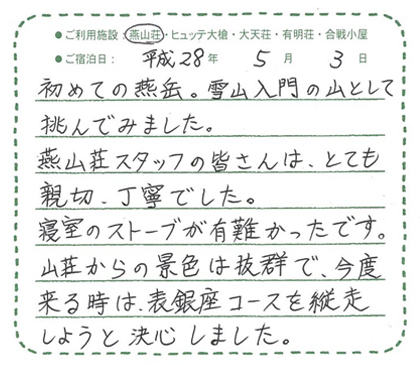 ●ご利用施設：燕山荘・ヒュッテ大槍・大天荘・有明荘・合戦小屋
●ご宿泊日：平成28年 5月 3日
初めての燕岳。雪山入門の山として
挑んでみました。
燕山荘スタッフの皆さんは、とても
親切、丁寧でした。
寝室のストーブが有難かったです。
山荘からの景色は抜群で、今度
来る時は、表銀座コースを縦走
しようと決心しました。